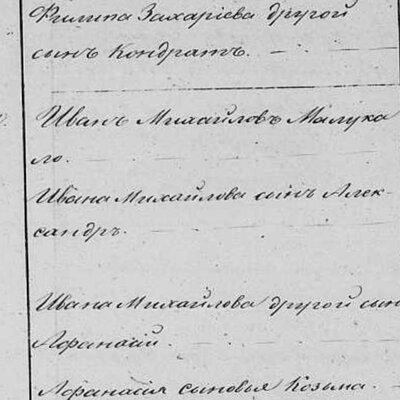 Филипа Захаріева другой
сынъ Кондратъ.
Иванъ Михайловъ Малука
ло.
Ивана Михайлова сынъ Алек-
сандръ.
Ивана Михайлова другой сын
Афанасій.
Афанасія сыновья Козьма.